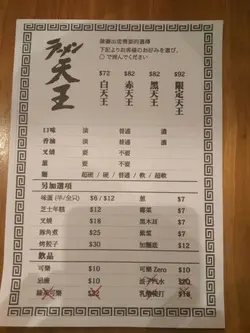 ラーメン
天王
請圈出您需要的選擇
下記よりお客様のお好みを選び、
○で囲んでください
$72 $82 $82 $92
白天王 赤天王 黑天王 限定天王
口味 淡 普通 濃
葱油 淡 普通 濃
叉燒 要 不要
葱 要 不要
麵 超硬 / 硬 / 普通 / 軟 / 超軟
另加選項
味蛋 (半/全只) $6 / $12 葱 $7
芝士年糕 $12 $7
叉燒 $18 黑木耳 $7
豚角煮 $25 $7
烤餃子 $30 加麵底 $12
飲品
可樂 $10 可樂 Zero $10
忌廉 $10 波子汽水 $20
$22 乳酸梳打 $18